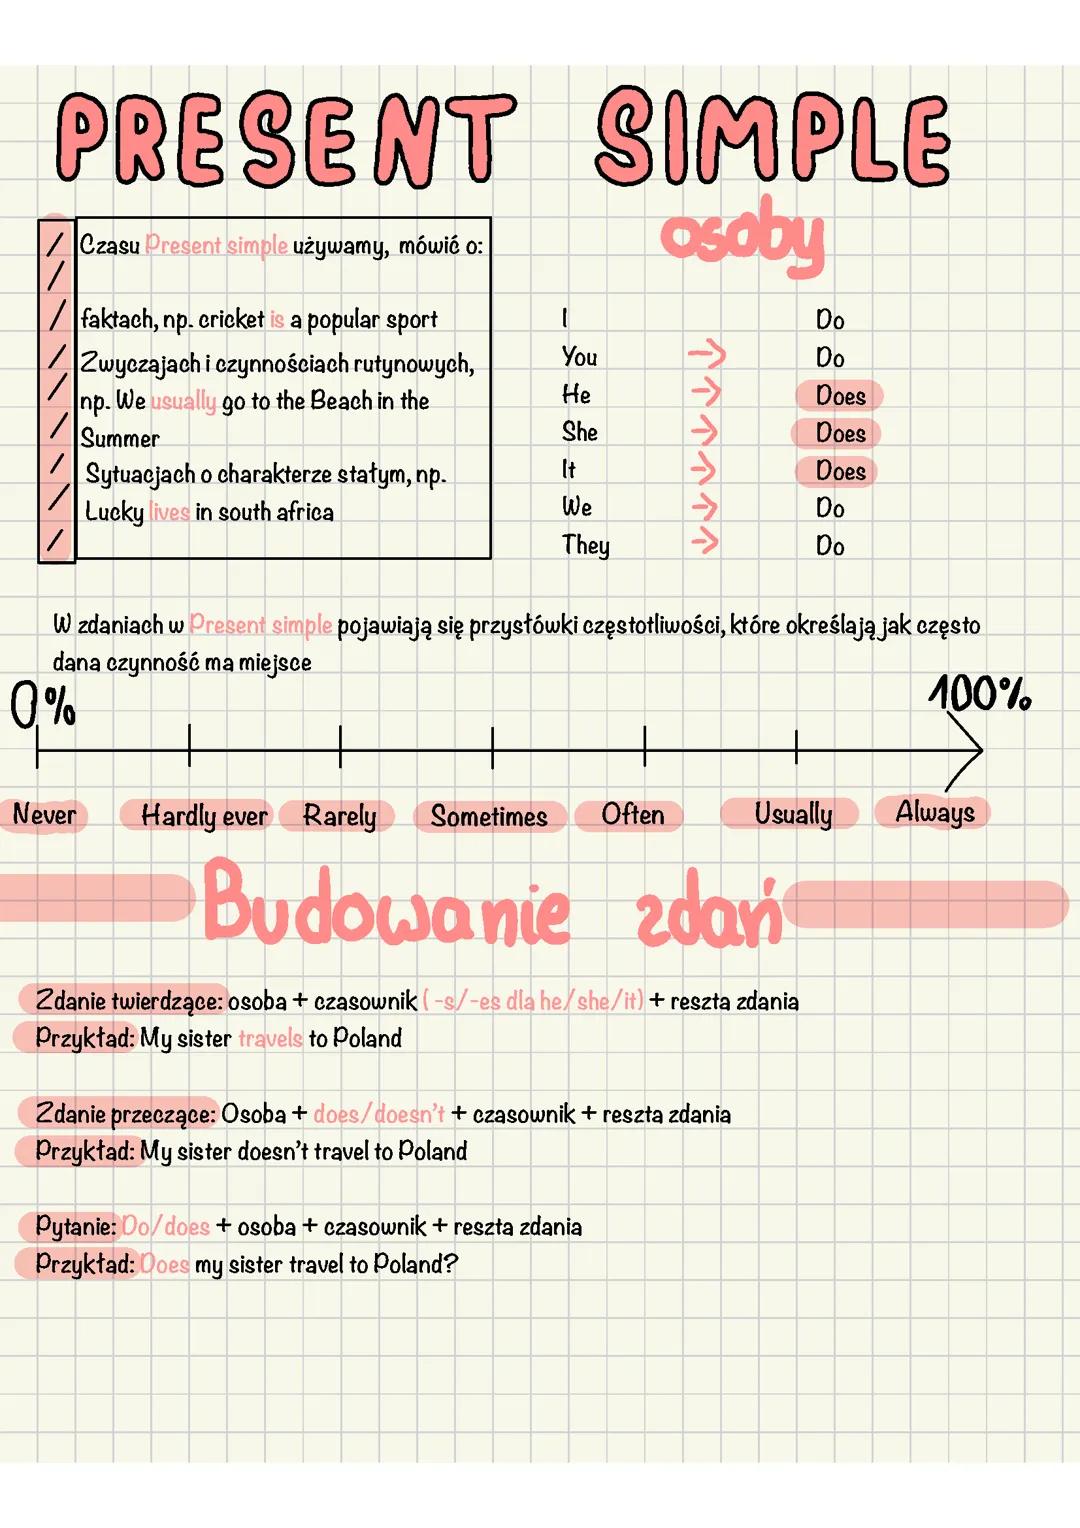 PRESENT SIMPLE
Czasu Present simple używamy, mówić o:
faktach, np. cricket is a popular sport
Zwyczajach i czynnościach rutynowych,
np. We usually go to the Beach in the
Summer
Sytuacjach o charakterze stałym, np.
Lucky lives in south africa
osoby
I Do
You → Do
He → Does
She → Does
It → Does
We → Do
They → Do
W zdaniach w Present simple pojawiają się przysłówki częstotliwości, które określają jak często
dana czynność ma miejsce
0% 100%
Never Hardly ever Rarely Sometimes Often Usually Always
Budowanie zdań
Zdanie twierdzące: osoba + czasownik ( -s/-es dla he/she/it) + reszta zdania
Przykład: My sister travels to Poland
Zdanie przeczące: Osoba + does/doesn't + czasownik + reszta zdania
Przykład: My sister doesn't travel to Poland
Pytanie: Do/does + osoba + czasownik + reszta zdania
Przykład: Does my sister travel to Poland?